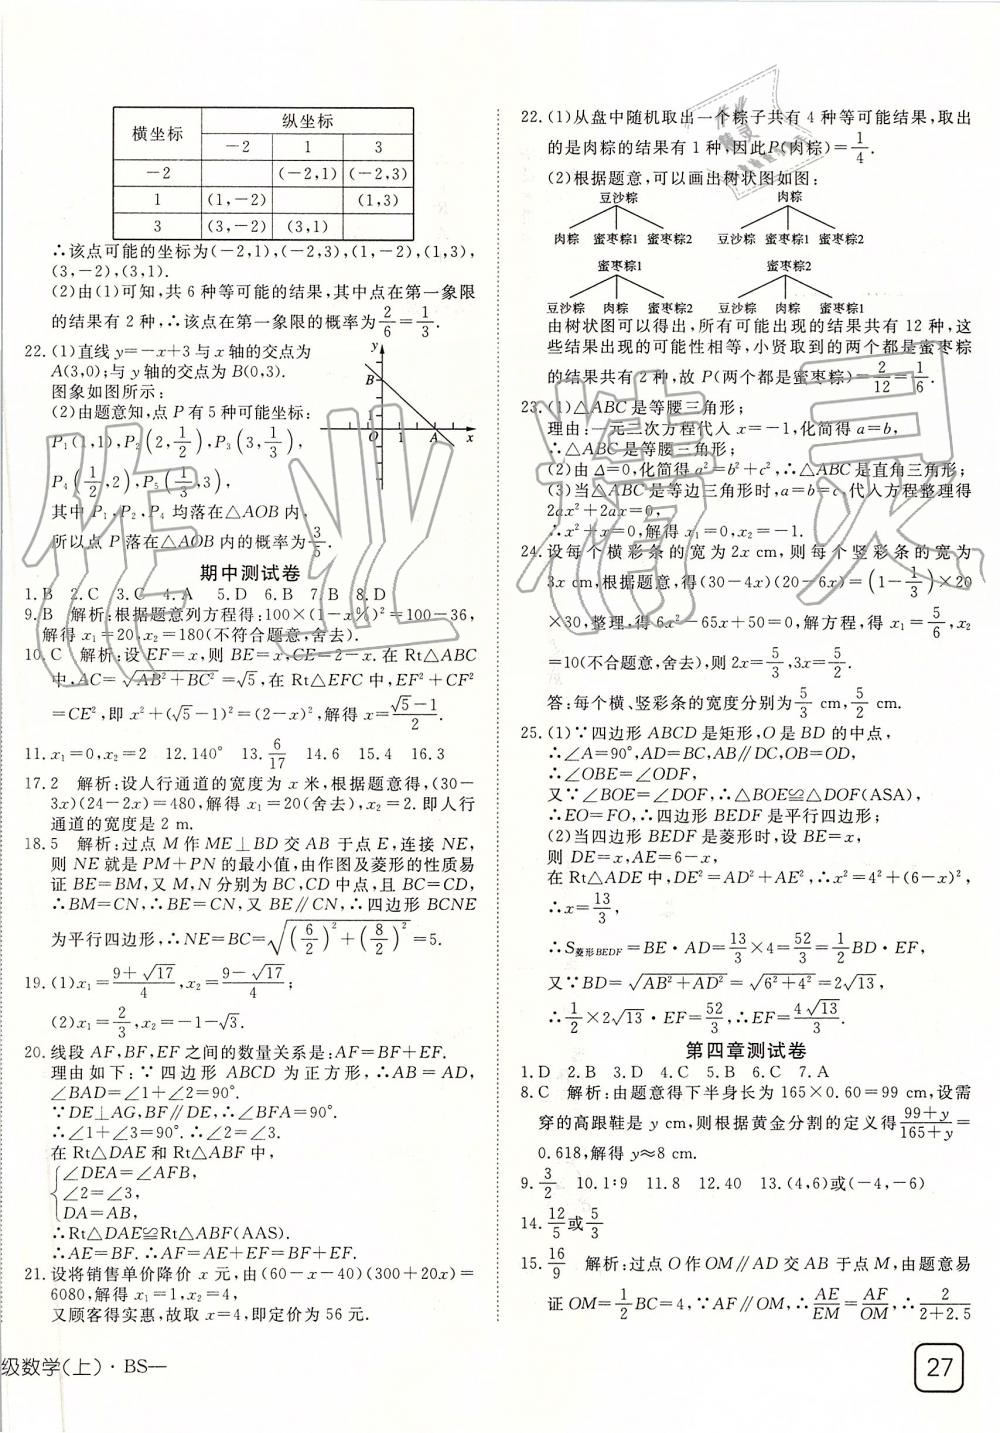 横坐标 纵坐标
-2 1 3
-2 (-2,1) (-2,3)
1 (1,-2) (1,3)
3 (3,-2) (3,1)
∴该点可能的坐标为(-2,1),(-2,3),(1,-2),(1,3),
(3,-2),(3,1).
(2)由(1)可知,共6种等可能的结果,其中点在第一象限
的结果有2种,∴该点在第一象限的概率为2/6=1/3.
22.(1)直线y=-x+3与x轴的交点为
A(3,0);与y轴的交点为B(0,3).
图象如图所示:
(2)由题意知,点P有5种可能坐标:
P₁(1,1),P₂(2,1/2),P₃(3,1/3),
P₄(1/2,2),P₅(1/3,3),
其中P₁,P₂,P₄均落在△AOB内,
所以点P落在△AOB内的概率为3/5.
y
B
1
O 1 A x
期中测试卷
1.B 2.C 3.C 4.A 5.D 6.B 7.B 8.D
9.B 解析:根据题意列方程得:100×(1-x%)²=100-36,
解得x₁=20,x₂=180(不符合题意,舍去).
10.C 解析:设EF=x,则BE=x,CE=2-x.在Rt△ABC
中,AC=√(AB²+BC²)=√5,在Rt△EFC中,EF²+CF²
=CE²,即x²+(√5-1)²=(2-x)²,解得x=(√5-1)/2.
11.x₁=0,x₂=2 12.140° 13.6/17 14.6 15.4 16.3
17.2 解析:设人行通道的宽度为x米,根据题意得,(30-
3x)(24-2x)=480,解得x₁=20(舍去),x₂=2.即人行
通道的宽度是2 m.
18.5 解析:过点M作ME⊥BD交AB于点E,连接NE,
则NE就是PM+PN的最小值,由作图及菱形的性质易
证BE=BM,又M,N分别为BC,CD中点,且BC=CD,
∴BM=CN,∴BE=CN,又BE∥CN,∴四边形BCNE
为平行四边形,∴NE=BC=√((6/2)²+(8/2)²)=5.
19.(1)x₁=(9+√17)/4,x₂=(9-√17)/4;
(2)x₁=2/3,x₂=-1-√3.
20.线段AF,BF,EF之间的数量关系是:AF=BF+EF.
理由如下:∵四边形ABCD为正方形,∴AB=AD,
∠BAD=∠1+∠2=90°.
∵DE⊥AG,BF∥DE,∴∠BFA=90°.
∴∠1+∠3=90°.∴∠2=∠3.
在Rt△DAE和Rt△ABF中,
{∠DEA=∠AFB,
∠2=∠3,
DA=AB,
∴Rt△DAE≌Rt△ABF(AAS).
∴AE=BF.∴AF=AE+EF=BF+EF.
21.设将销售单价降价x元,由(60-x-40)(300+20x)=
6080,解得x₁=1,x₂=4,
又顾客得实惠,故取x=4,即定价为56元.
级数学(上)·BS—
22.(1)从盘中随机取出一个粽子共有4种等可能结果,取出
的是肉粽的结果有1种,因此P(肉粽)=1/4.
(2)根据题意,可以画出树状图如图:
豆沙粽 肉粽
肉粽 蜜枣粽1 蜜枣粽2 豆沙粽 蜜枣粽1 蜜枣粽2
蜜枣粽1 蜜枣粽2
豆沙粽 肉粽 蜜枣粽2 豆沙粽 肉粽 蜜枣粽1
由树状图可以得出,所有可能出现的结果共有12种,这
些结果出现的可能性相等,小贤取到的两个都是蜜枣粽
的结果共有2种,故P(两个都是蜜枣粽)=2/12=1/6.
23.(1)△ABC是等腰三角形;
理由:一元二次方程代入x=-1,化简得a=b,
∴△ABC是等腰三角形;
(2)由Δ=0,化简得a²=b²+c²,∴△ABC是直角三角形;
(3)当△ABC是等边三角形时,a=b=c,代入方程整理得
2ax²+2ax=0,
∴x²+x=0,解得x₁=0,x₂=-1.
24.设每个横彩条的宽为2x cm,则每个竖彩条的宽为
3x cm,根据题意,得(30-4x)(20-6x)=(1-1/3)×20
×30,整理,得6x²-65x+50=0,解方程,得x₁=5/6,x₂
=10(不合题意,舍去),则2x=5/3,3x=5/2.
答:每个横、竖彩条的宽度分别为5/3 cm,5/2 cm.
25.(1)∵四边形ABCD是矩形,O是BD的中点,
∴∠A=90°,AD=BC,AB∥DC,OB=OD,
∴∠OBE=∠ODF,
又∵∠BOE=∠DOF,∴△BOE≌△DOF(ASA),
∴EO=FO,∴四边形BEDF是平行四边形;
(2)当四边形BEDF是菱形时,设BE=x,
则DE=x,AE=6-x,
在Rt△ADE中,DE²=AD²+AE²,∴x²=4²+(6-x)²,
∴x=13/3,
∴S菱形BEDF=BE·AD=13/3×4=52/3=1/2BD·EF,
又∵BD=√(AB²+AD²)=√(6²+4²)=2√13,
∴1/2×2√13·EF=52/3,∴EF=4√13/3.
第四章测试卷
1.D 2.B 3.D 4.C 5.B 6.C 7.A
8.C 解析:由题意得下半身长为165×0.60=99 cm,设需
穿的高跟鞋是y cm,则根据黄金分割的定义得(99+y)/(165+y)=
0.618,解得y≈8 cm.
9.3/2 10.1∶9 11.8 12.40 13.(4,6)或(-4,-6)
14.12/5或5/3
15.16/9 解析:过点O作OM∥AD交AB于点M,由题意易
证OM=1/2BC=4,∵AF∥OM,∴AE/EM=AF/OM,∴2/(2+2.5)
27
作业精灵